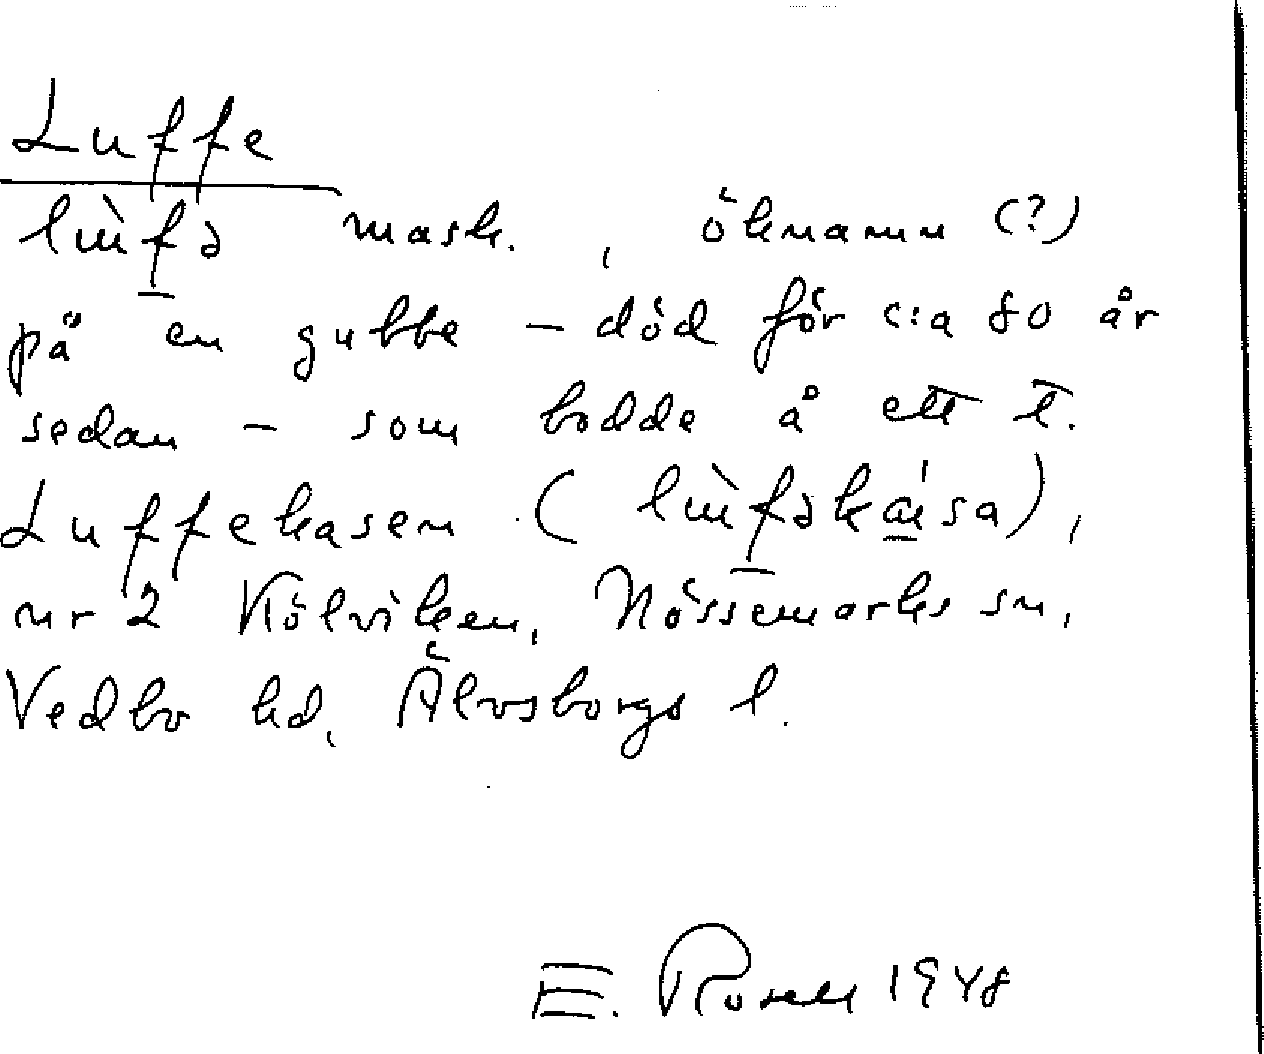 Luffe
lu̇̀fə mask., öknamn (?)
på en gubbe – död för c:a 80 år
sedan – som bodde å ett t.
Luffekasen (lu̇̀fəkása),
nr 2 Kölviken, Nössemarks sn,
Vedbo hd, Älvsborgs l.
E. Rosell 1948